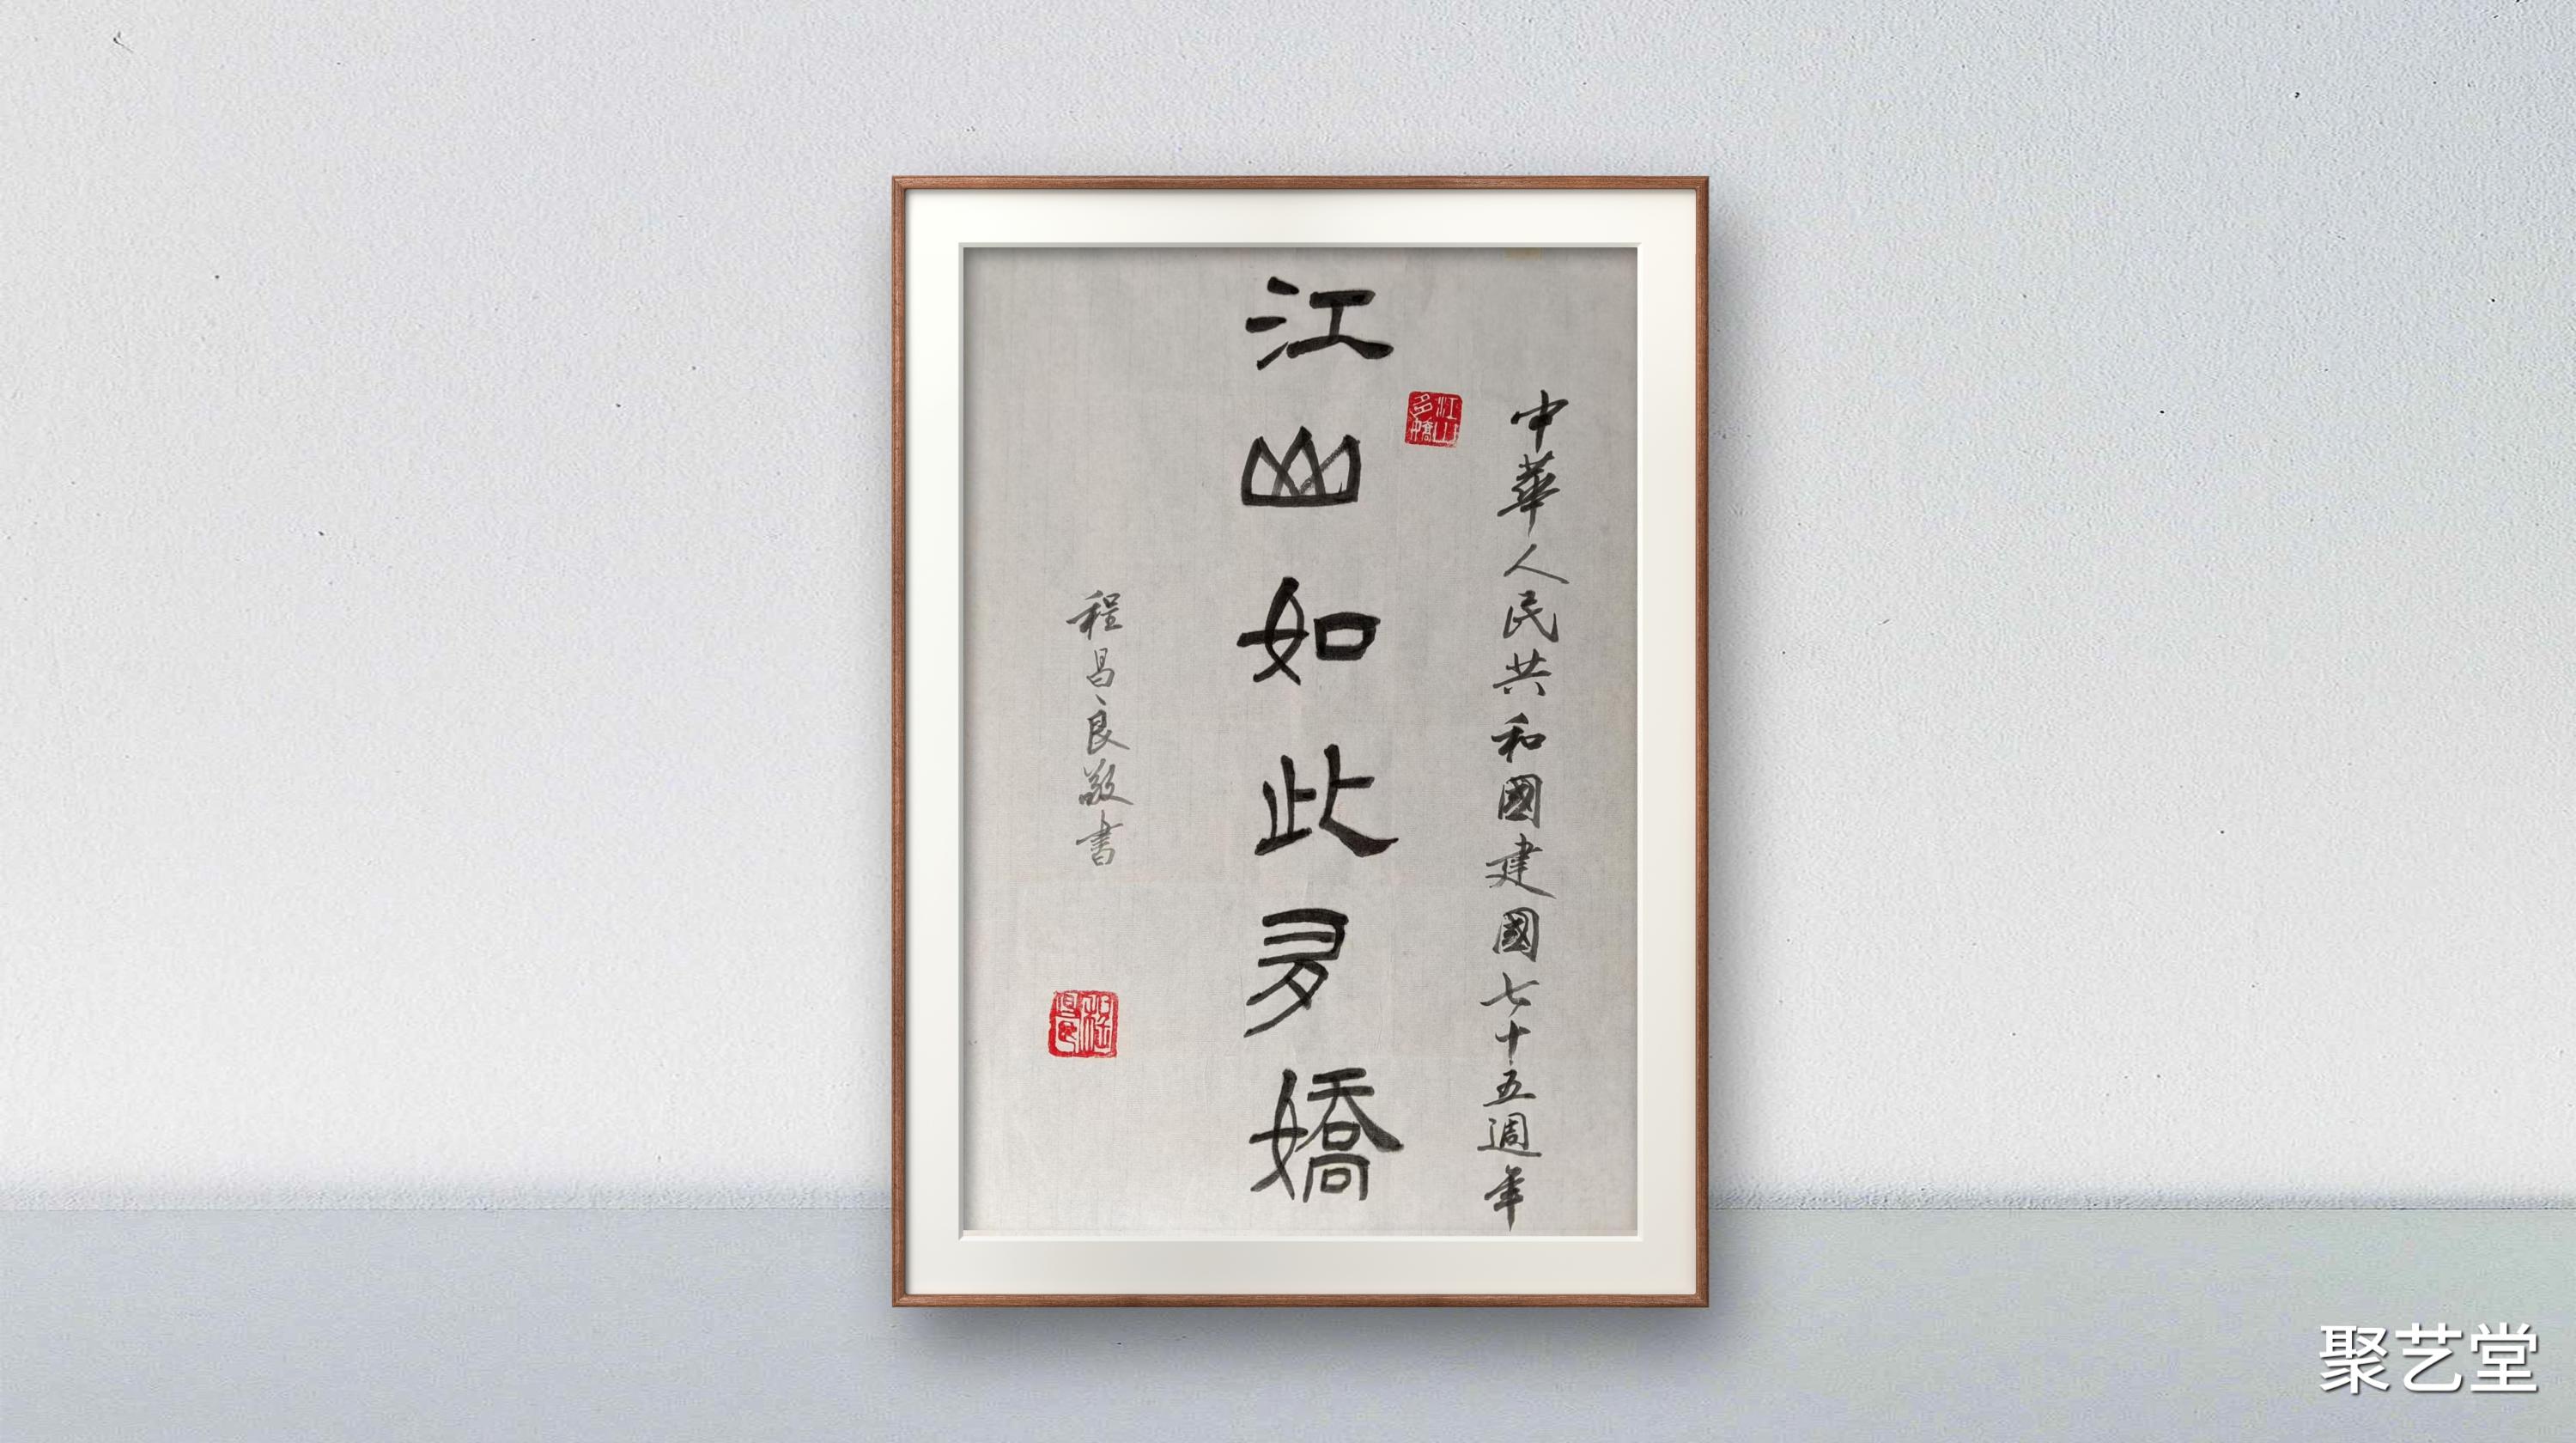 中華人民共和國建國七十五週年
江山多嬌
江山如此多嬌
程昌良敬書
程昌良
聚艺堂